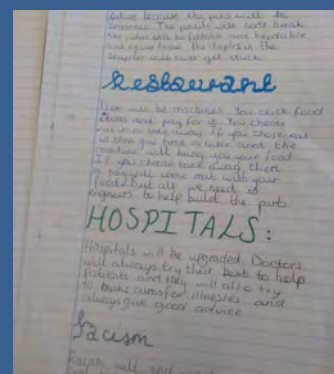 future because the pens will be
The pencils will never break
will be foldable and bendable
and never tear. The staples in the
stapler will never get stuck
Restaurant
There will be machines. You click food
and pay for it. You choose
eat in or take away. If you chose eat
in then you find a table and the
machine will bring you your food
If you choose take away then
a bag will come out with your
food. But all we need is
engineers to help build the parts.
HOSPITALS:
Hospitals will be upgraded. Doctors
will always try their best to help
patients and they will also try
to make cures for illnesses and
always give good advice.
Racism
Racism will end